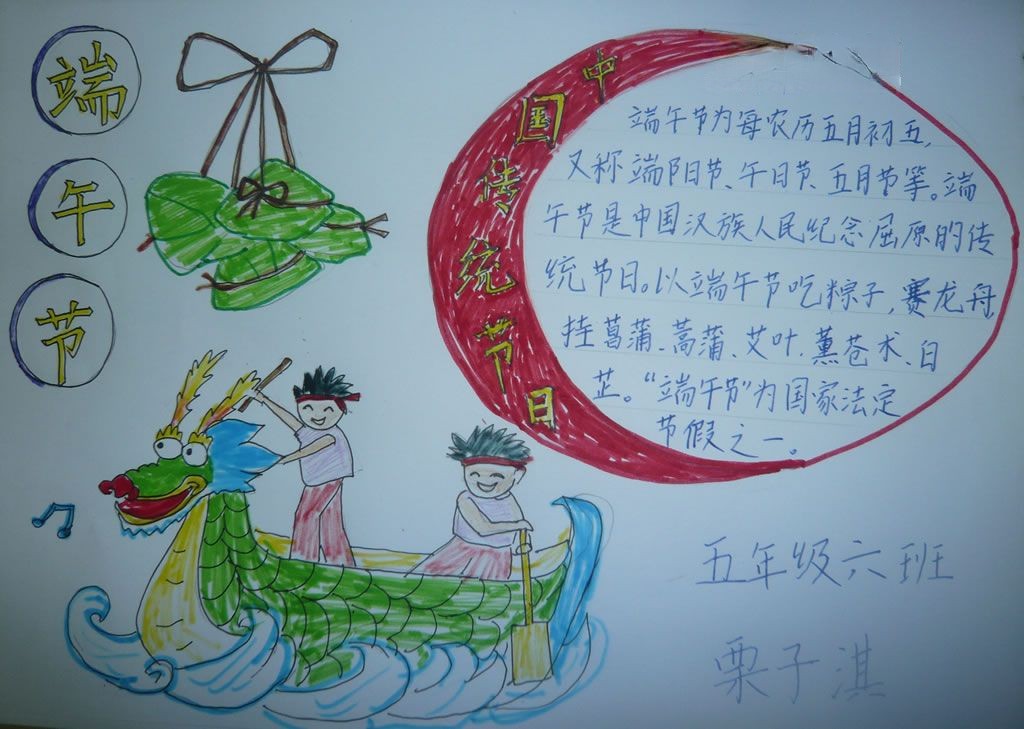 端
午
节
中国传统节日
端午节为每农历五月初五,
又称端阳节、午日节、五月节等。端
午节是中国汉族人民纪念屈原的传
统节日。以端午节吃粽子,赛龙舟,
挂菖蒲、蒿蒲、艾叶,薰苍术、白
芷。“端午节”为国家法定
节假之一。
五年级六班
栗子淇